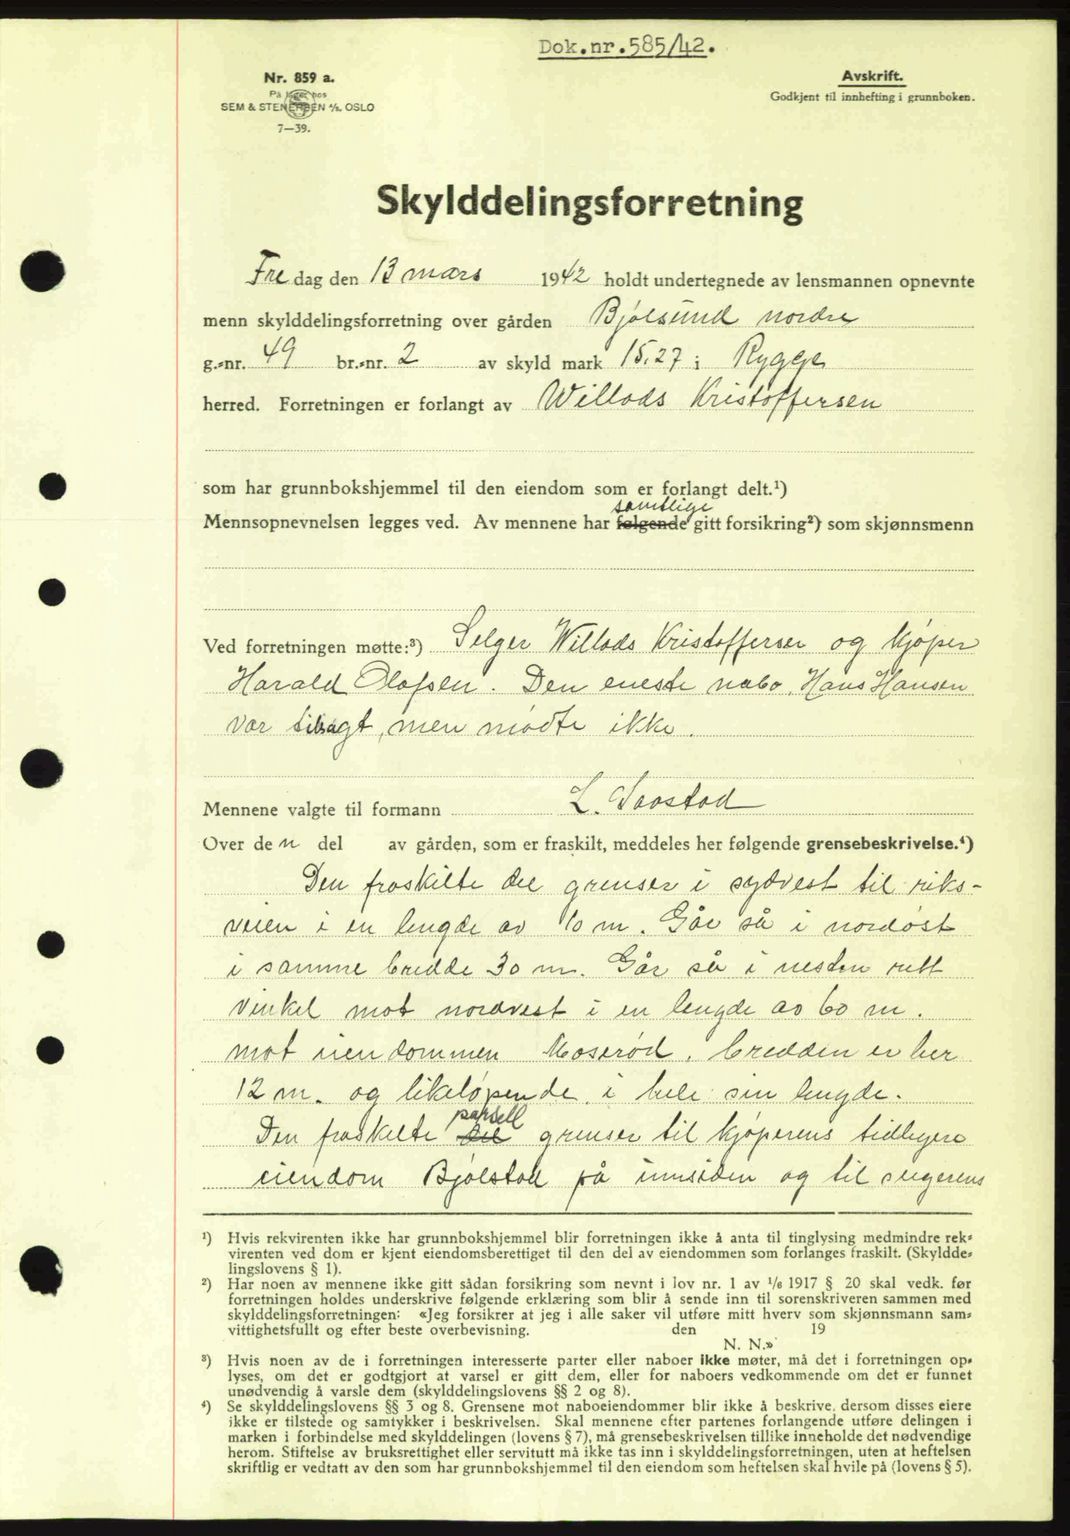 Dok.nr.585/42.
Nr. 859 a.
På lager hos
SEM & STENERSEN A/S. OSLO
7—39.
Avskrift.
Godkjent til innhefting i grunnboken.
Skylddelingsforretning
Fre dag den 13 mars 1942 holdt undertegnede av lensmannen opnevnte
menn skylddelingsforretning over gården Bjølsund nordre
g.-nr. 49 br.-nr. 2 av skyld mark 15.27 i Rygge
herred. Forretningen er forlangt av Willads Kristoffersen
som har grunnbokshjemmel til den eiendom som er forlangt delt.¹)
samtlige
Mennsopnevnelsen legges ved. Av mennene har følgende gitt forsikring²) som skjønnsmenn
Ved forretningen møtte:³) Selger Willads Kristoffersen og kjøper
Harald Olafsen. Den eneste nabo, Hans Hansen
var tilsagt, men mødte ikke.
Mennene valgte til formann L.
Over de n del av gården, som er fraskilt, meddeles her følgende grensebeskrivelse.⁴)
Den fraskilte del grenser i sydvest til riks-
veien i en lengde av 10 m. Går så i nordøst
i samme bredde 30 m. Går så i nesten rett
vinkel mot nordvest i en lengde av 60 m.
mot eiendommen Moserød. bredden er her
12 m. og likeløpende i hele sin lengde.
parsell
Den fraskilte del grenser til kjøperens tidligere
eiendom Bjølstad på innsiden og til selgerens
¹) Hvis rekvirenten ikke har grunnbokshjemmel blir forretningen ikke å anta til tinglysing medmindre rek-
virenten ved dom er kjent eiendomsberettiget til den del av eiendommen som forlanges fraskilt. (Skyldde-
lingslovens § 1).
²) Har noen av mennene ikke gitt sådan forsikring som nevnt i lov nr. 1 av 1/6 1917 § 20 skal vedk. før
forretningen holdes underskrive følgende erklæring som blir å sende inn til sorenskriveren sammen med
skylddelingsforretningen: «Jeg forsikrer at jeg i alle saker vil utføre mitt hverv som skjønnsmann sam-
vittighetsfullt og efter beste overbevisning. den 19
N. N.»
³) Hvis noen av de i forretningen interesserte parter eller naboer ikke møter, må det i forretningen op-
lyses, om det er godtgjort at varsel er gitt dem, eller for naboers vedkommende om det er funnet
unødvendig å varsle dem (skylddelingslovens §§ 2 og 8).
⁴) Se skylddelingslovens §§ 3 og 8. Grensene mot naboeiendommer blir ikke å beskrive, dersom disses eiere
ikke er tilstede og samtykker i beskrivelsen. Skal mennene efter partenes forlangende utføre delingen i
marken i forbindelse med skylddelingen (lovens § 7), må grensebeskrivelsen tillike inneholde det nødvendige
herom. Stiftelse av bruksrettighet eller servitutt må ikke tas inn i skylddelingsforretningen, uten at heftelsen
skriftlig er vedtatt av den som har grunnbokshjemmel til den eiendom som heftelsen skal hvile på (lovens § 5).